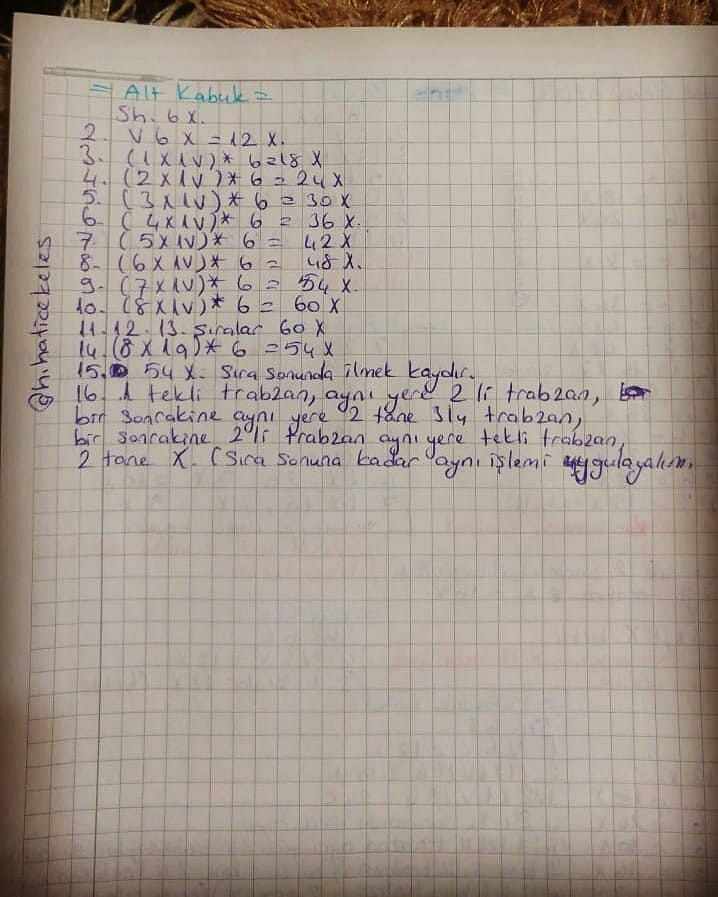 = Alt Kabuk =
Sh. 6 X.
2. V 6 X = 12 X.
3. (1 X 1V)* 6=18 X
4. (2 X 1V)* 6 = 24 X
5. (3 X 1V)* 6 = 30 X
6- (4 X 1V)* 6 = 36 X.
7. (5 X 1V)* 6 = 42 X
8- (6 X 1V)* 6 = 48 X.
9- (7 X 1V)* 6 = 54 X.
10. (8 X 1V)* 6 = 60 X
11. 12. 13. sıralar 60 X
14. (8 X 1a)* 6 = 54 X
15. 54 X. Sıra sonunda ilmek kaydır.
16. 1 tekli trabzan, aynı yere 2 li trabzan,
bir sonrakine aynı yere 2 tane 3lü trabzan,
bir sonrakine 2 li trabzan aynı yere tekli trabzan,
2 tane X. (Sıra sonuna kadar aynı işlemi uygulayalım.
@h.haticekeles